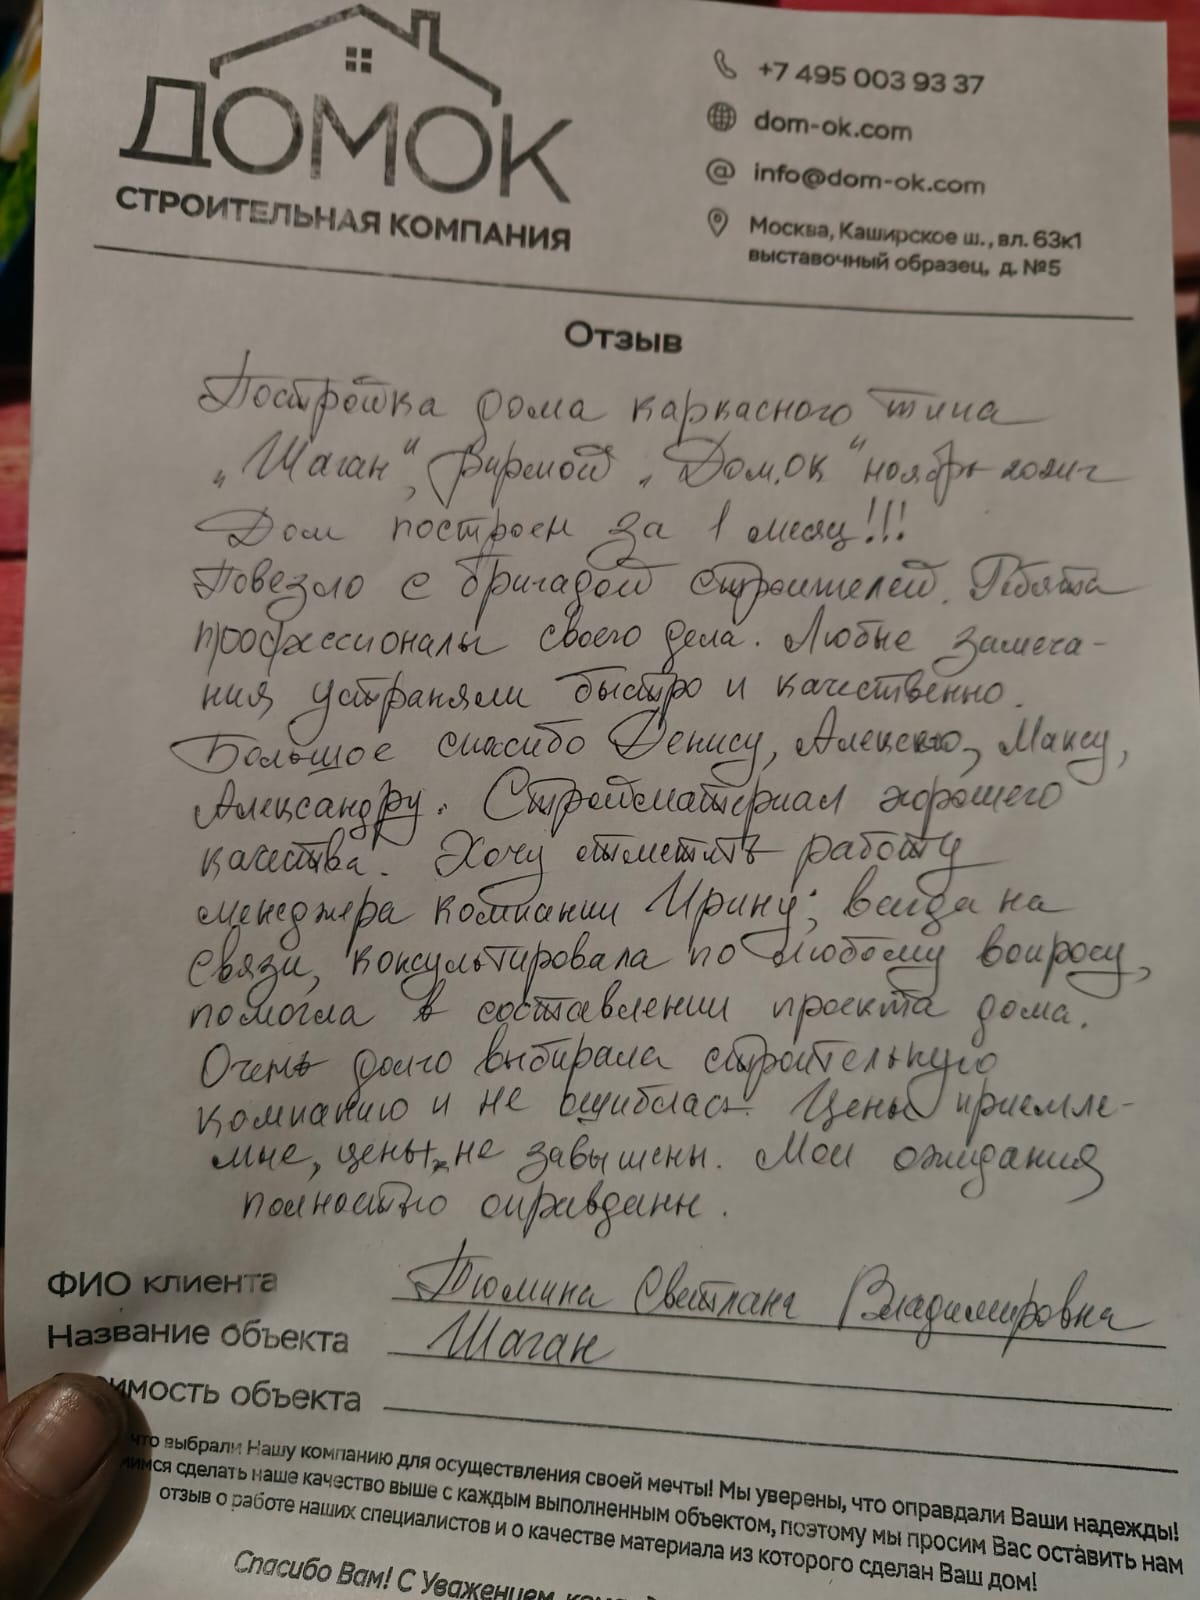 ДОМОК
СТРОИТЕЛЬНАЯ КОМПАНИЯ
+7 495 003 93 37
dom-ok.com
info@dom-ok.com
Москва, Каширское ш., вл. 63к1
выставочный образец, д. №5
Отзыв
Постройка дома каркасного типа
„Шаган“, фирмой „Дом.ок“ ноябрь
Дом построен за 1 месяц!!!
Повезло с бригадой строителей. Ребята
профессионалы своего дела. Любые замеча-
ния устраняли быстро и качественно.
Большое спасибо Денису, Алексею, Максу,
Александру. Стройматериал хорошего
качества. Хочу отметить работу
менеджера компании Ирину; всегда на
связи, консультировала по любому вопросу,
помогла в составлении проекта дома.
Очень долго выбирала строительную
компанию и не ошиблась. Цены приемле-
мые, цены не завышены. Мои ожидания
полностью оправданы.
ФИО клиента Тюмина Светлана Владимировна
Название объекта Шаган
имость объекта
что выбрали Нашу компанию для осуществления своей мечты! Мы уверены, что оправдали Ваши надежды!
имся сделать наше качество выше с каждым выполненным объектом, поэтому мы просим Вас оставить нам
отзыв о работе наших специалистов и о качестве материала из которого сделан Ваш дом!
Спасибо Вам! С Уважением,